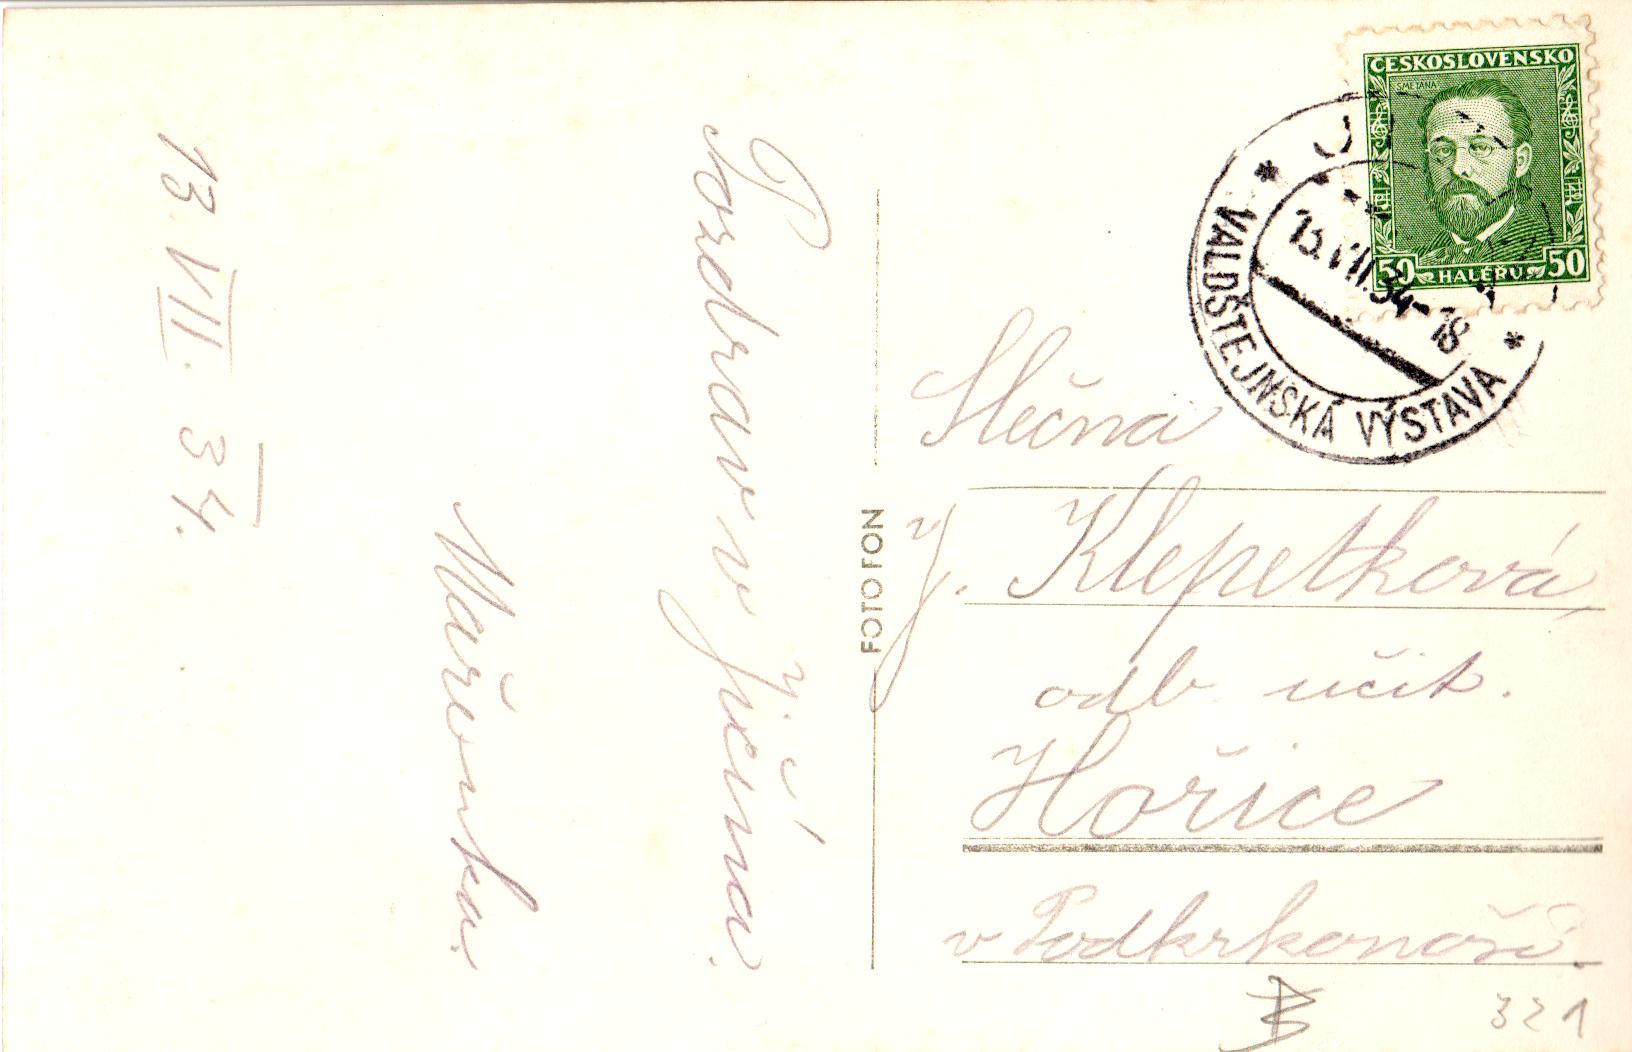 Pozdrav z Jičína.
Mařenka.
13. VII. 34.
FOTOFON
ČESKOSLOVENSKO
SMETANA
50 HALÉŘŮ 50
13.VII.34-18
VALDŠTEJNSKÁ VÝSTAVA
Slečna
J. Klepetková,
odb. učit.
Hořice
v Podkrkonoší.
321